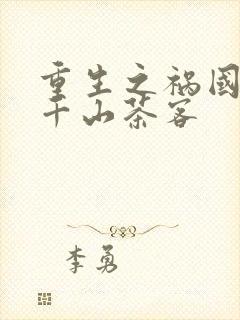 重生之祸國
千山茶客
李勇